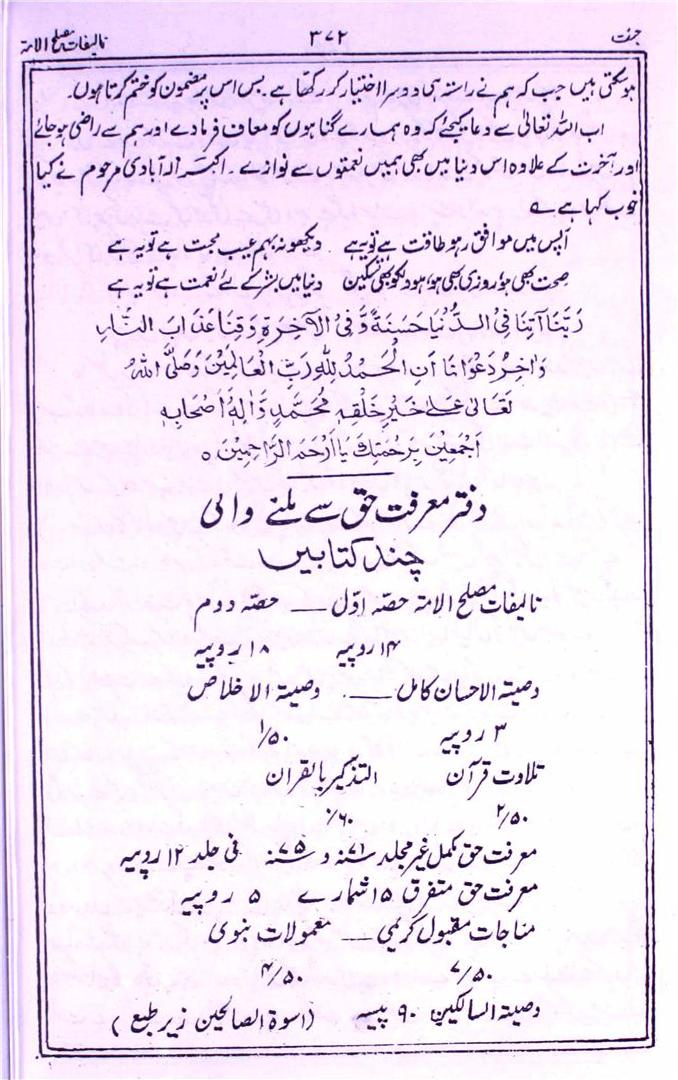 جنت ۳۷۲ تالیفات مصلح الامۃ
ہو سکتی ہیں جب کہ ہم نے راستہ ہی دوسرا اختیار کر رکھا ہے۔ بس اس پر مضمون کو ختم کرتا ہوں۔
اب اللہ تعالیٰ سے دعا کیجئے کہ وہ ہمارے گناہوں کو معاف فرمادے اور ہم سے راضی ہوجائے
اور آخرت کے علاوہ اس دنیا میں بھی ہمیں نعمتوں سے نوازے۔ اکبر الہ آبادی مرحوم نے کیا
خوب کہا ہے ؎
آپس میں موافق رہو طاقت ہے تو یہ ہے دیکھو نہ بہم عیب محبت ہے تو یہ ہے
صحت بھی ہو روزی بھی ہو اور دل کو بھی تسکین دنیا میں بشر کے لئے نعمت ہے تو یہ ہے
رَبَّنَا آتِنَا فِی الدُّنْیَا حَسَنَةً وَّفِی الْآخِرَةِ وَقِنَا عَذَابَ النَّارِ
وَاٰخِرُ دَعْوَانَا اَنِ الْحَمْدُ لِلّٰهِ رَبِّ الْعَالَمِیْنَ وَصَلَّی اللهُ
تَعَالٰی عَلٰی خَیْرِ خَلْقِهٖ مُحَمَّدٍ وَّاٰلِهٖ وَاَصْحَابِهٖ
اَجْمَعِیْنَ بِرَحْمَتِكَ یَا اَرْحَمَ الرَّاحِمِیْنَ ٥
دفتر معرفت حق سے ملنے والی
چند کتابیں
تالیفات مصلح الامۃ حصّہ اوّل ــــ حصّہ دوم
۱۴ روپیہ ۱۸ روپیہ
وصیۃ الاحسان کامل ــــ . وصیۃ الاخلاص
۳ روپیہ ۱/۵۰
تلاوت قرآن التذکیر بالقرآن
۲/۵۰ ۶۰/
معرفت حق مکمل غیر مجلد ۷۱ء و ۷۵ء فی جلد ۱۲ روپیہ
معرفت حق متفرق ۱۵ شمارے ۵ روپیہ
مناجات مقبول کریمی ــــ معمولات نبوی
۷/۵۰ ۴/۵۰
وصیۃ السالکین ۹۰ پیسے (اسوۃ الصالحین زیر طبع)